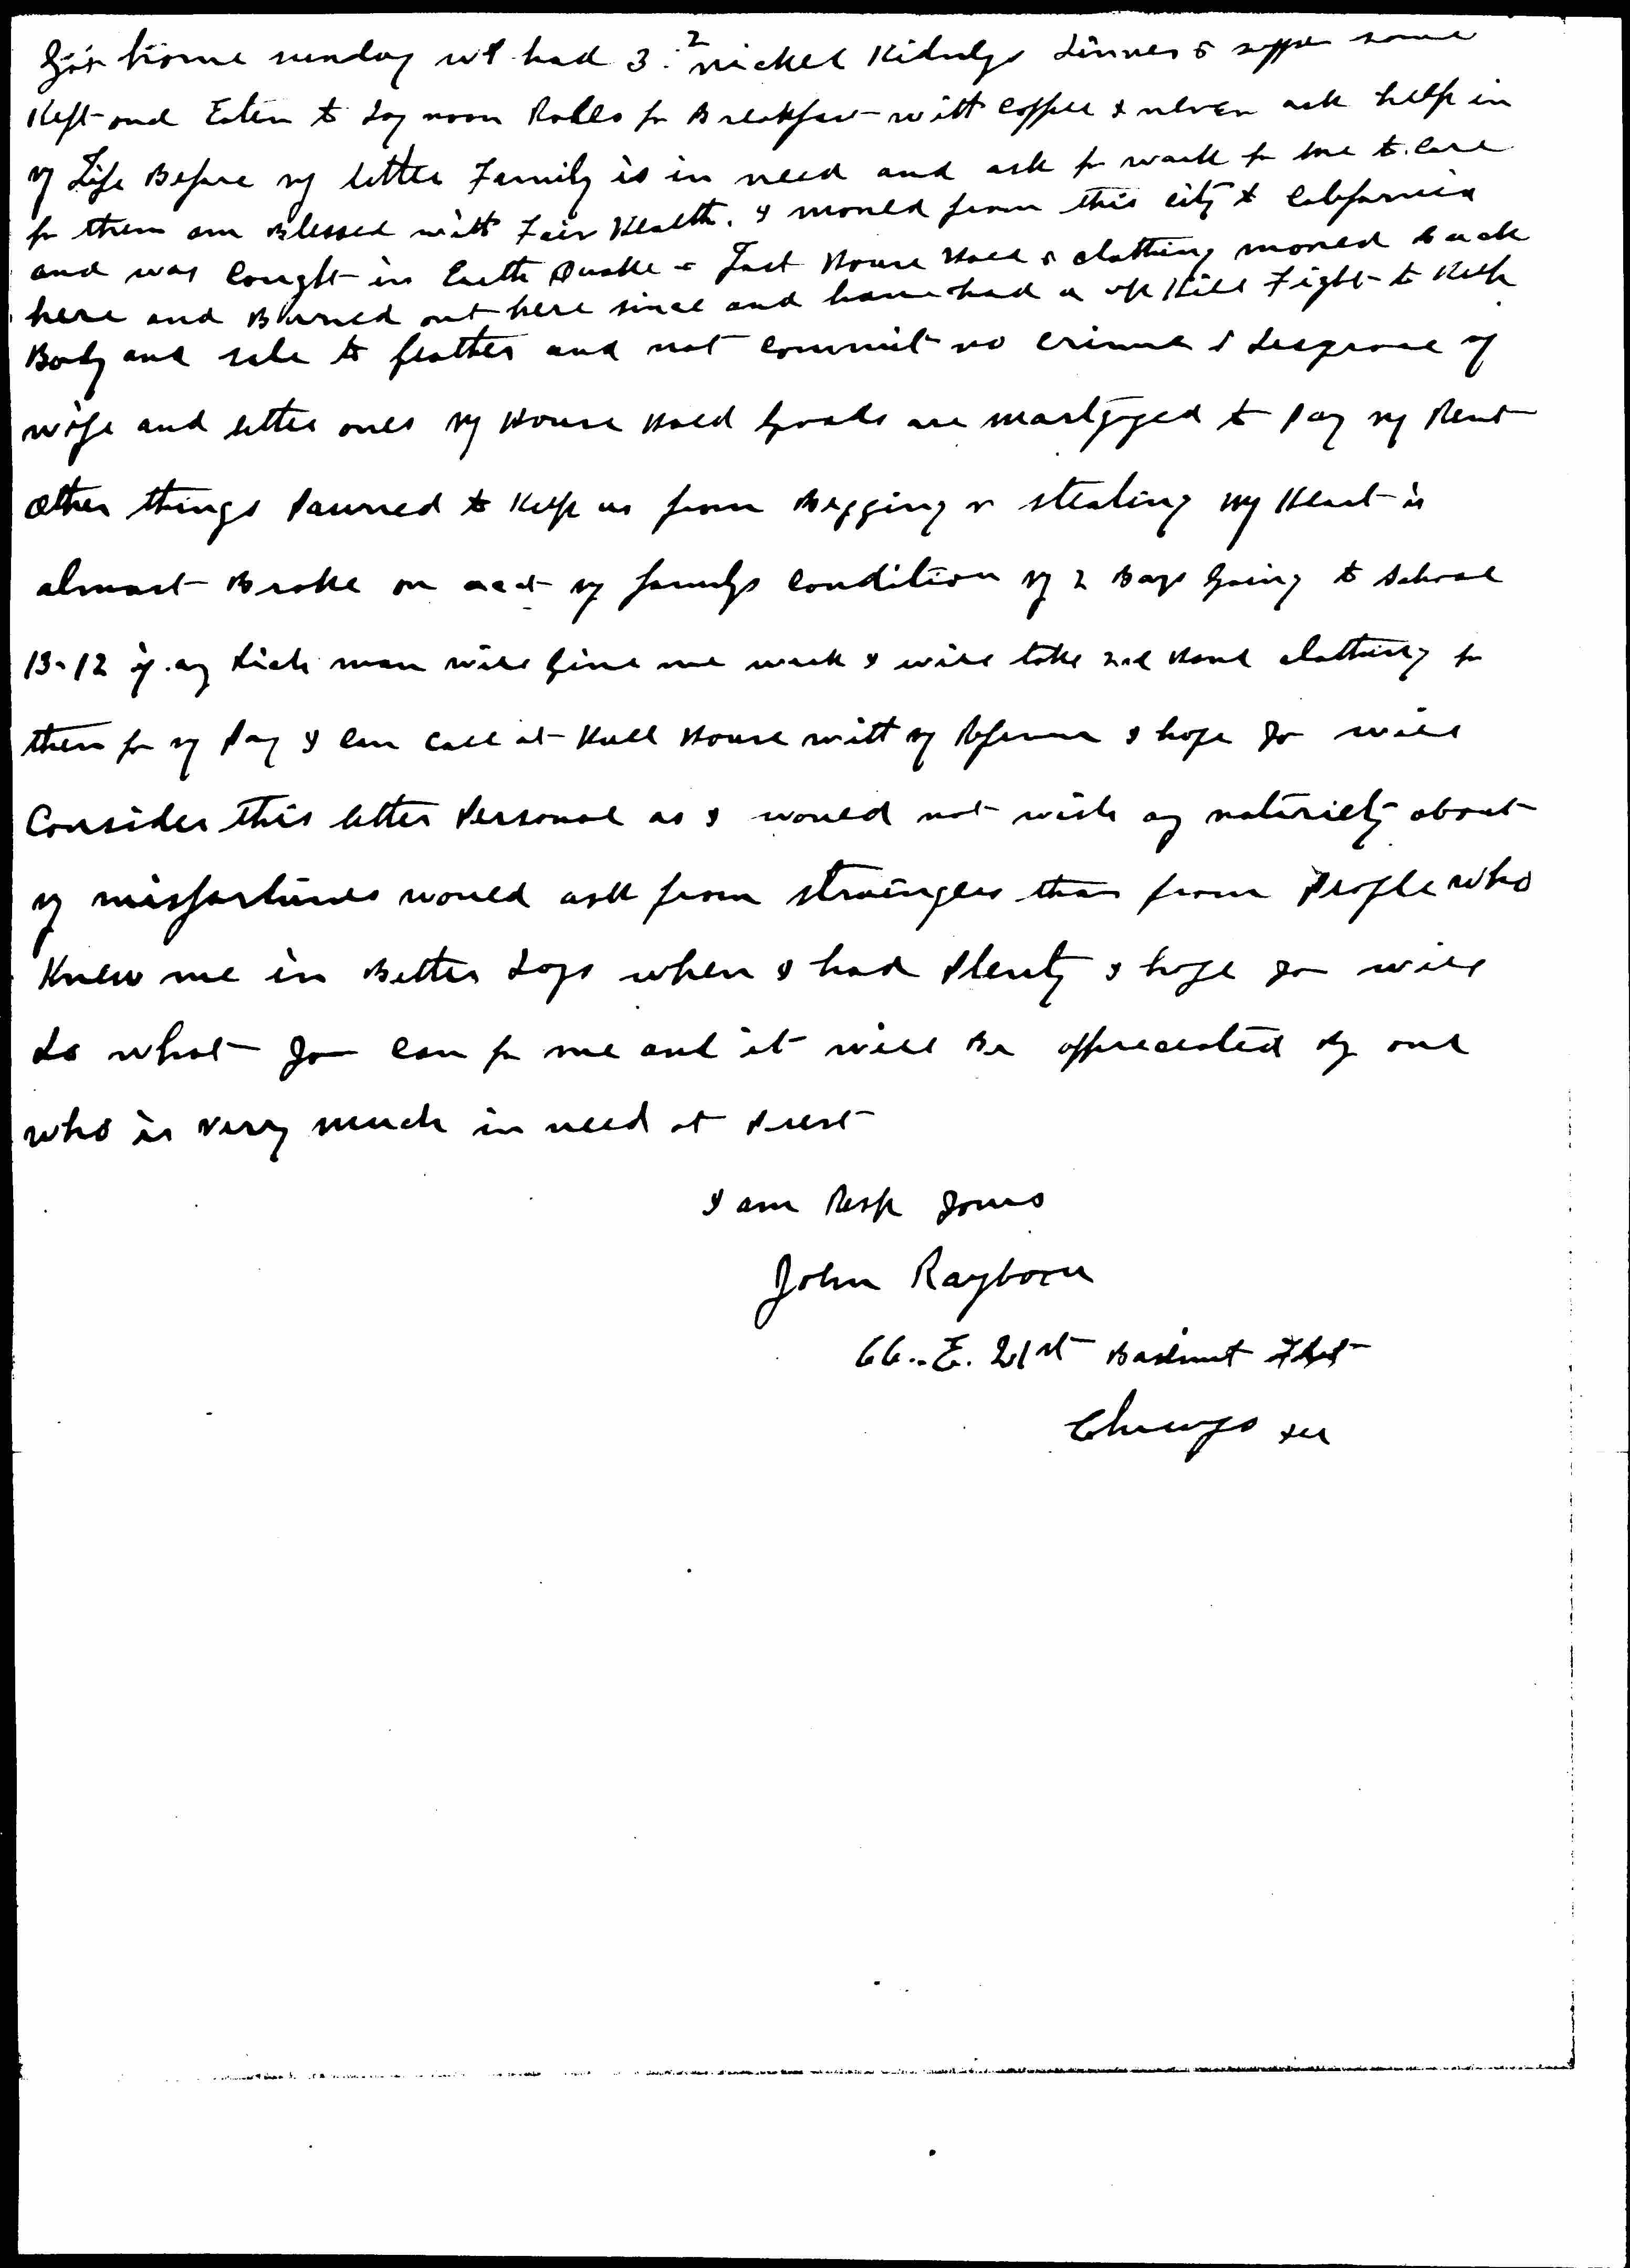 Got home sunday we had 3. 2 nickel Kidneys Dinner & supper some
Kept and Eaten to Day noon Rolls for Breakfast with coffee I never ask help in
my Life Before my little Family is in need and ask for work for me to care
for them am Blessed with Fair Health. I moved from this city to California
and was Caught in Earth Quake & Lost House Hold & clothing moved back
here and Burned out here since and have had a up Hill Fight to Keep
Body and sole to geather and not commit no crime & disgrace my
wife and little ones my House Hold goods are mortgaged to Pay my Rent
other things Pawned to Keep us from Begging or stealing my Heart is
almost Broke on acct my familys condition my 2 Boys going to School
13-12 if any Rich man will give me work I will take 2nd Hand clothing for
them for my Pay I can call at Hull House with my Reference I hope you will
Consider this letter Personal as I would not wish any notoriety about
my misfortunes would ask from straingers than from People who
Knew me in Better Days when I had Plenty I hope you will
do what you can for me and it will Be apprecated by one
who is very much in need at Prest
I am Resp yours
John Rayborn
66.. E. 21st Basemut Flat
Chicago Ill